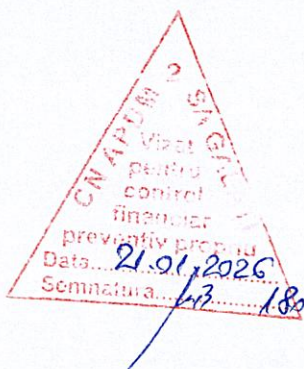 CN APDM
2
SA GAL
Vizat
pentru
control
financiar
preventiv propriu
Data.....21.01.2026
Semnatura.....